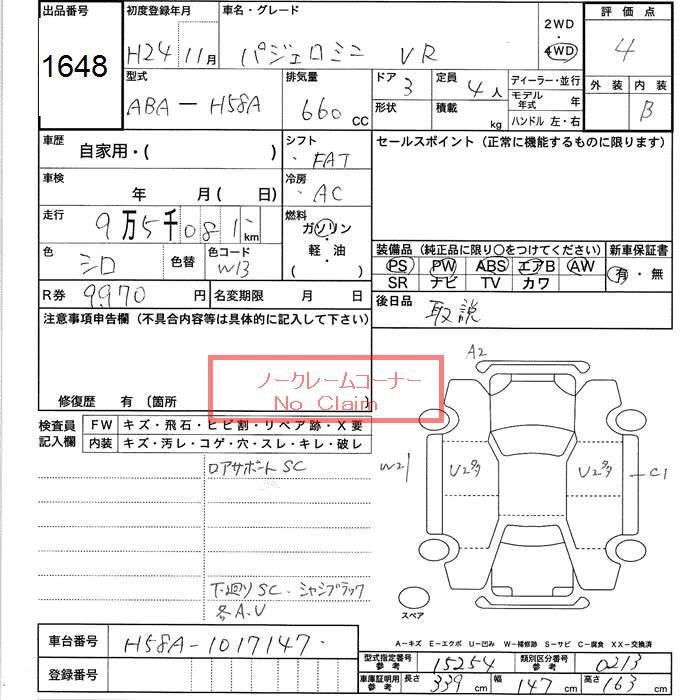 出品番号 初度登録年月 車名・グレード 2WD・4WD 評価点
1648 H24 11月 パジェロミニ VR 4
型式 排気量 ドア 定員 ディーラー・並行 外装 内装
ABA-H58A 660 CC 3 4人 モデル年式 年 B
形状 積載 kg ハンドル 左・右
車歴 自家用・( ) シフト FAT セールスポイント(正常に機能するものに限ります)
車検 年 月( 日) 冷房 AC
走行 9万5千081 km 燃料 ガソリン・軽・油( )
色 シロ 色替 色コード W13
装備品(純正品に限り〇をつけてください) 新車保証書
PS PW ABS エアB AW 有・無
SR ナビ TV カワ
R券 9970円 名変期限 月 日 後日品 取説
注意事項申告欄(不具合内容等は具体的に記入して下さい)
ノークレームコーナー
No Claim
修復歴 有(箇所
検査員記入欄 FW キズ・飛石・ヒビ割・リペア跡・X要
内装 キズ・汚レ・コゲ・穴・スレ・キレ・破レ
ロアサポートSC
下廻りSC・シャシブラック
各A.U
A2
W21 U2多 U2多 C1
スペア
車台番号 H58A-1017147
登録番号
A-キズ E-エクボ U-凹み W-補修跡 S-サビ C-腐食 XX-交換済
型式指定番号参考 15254 類別区分番号参考 0213
車庫証明用参考 長さ 339cm 幅 147cm 高さ 163cm